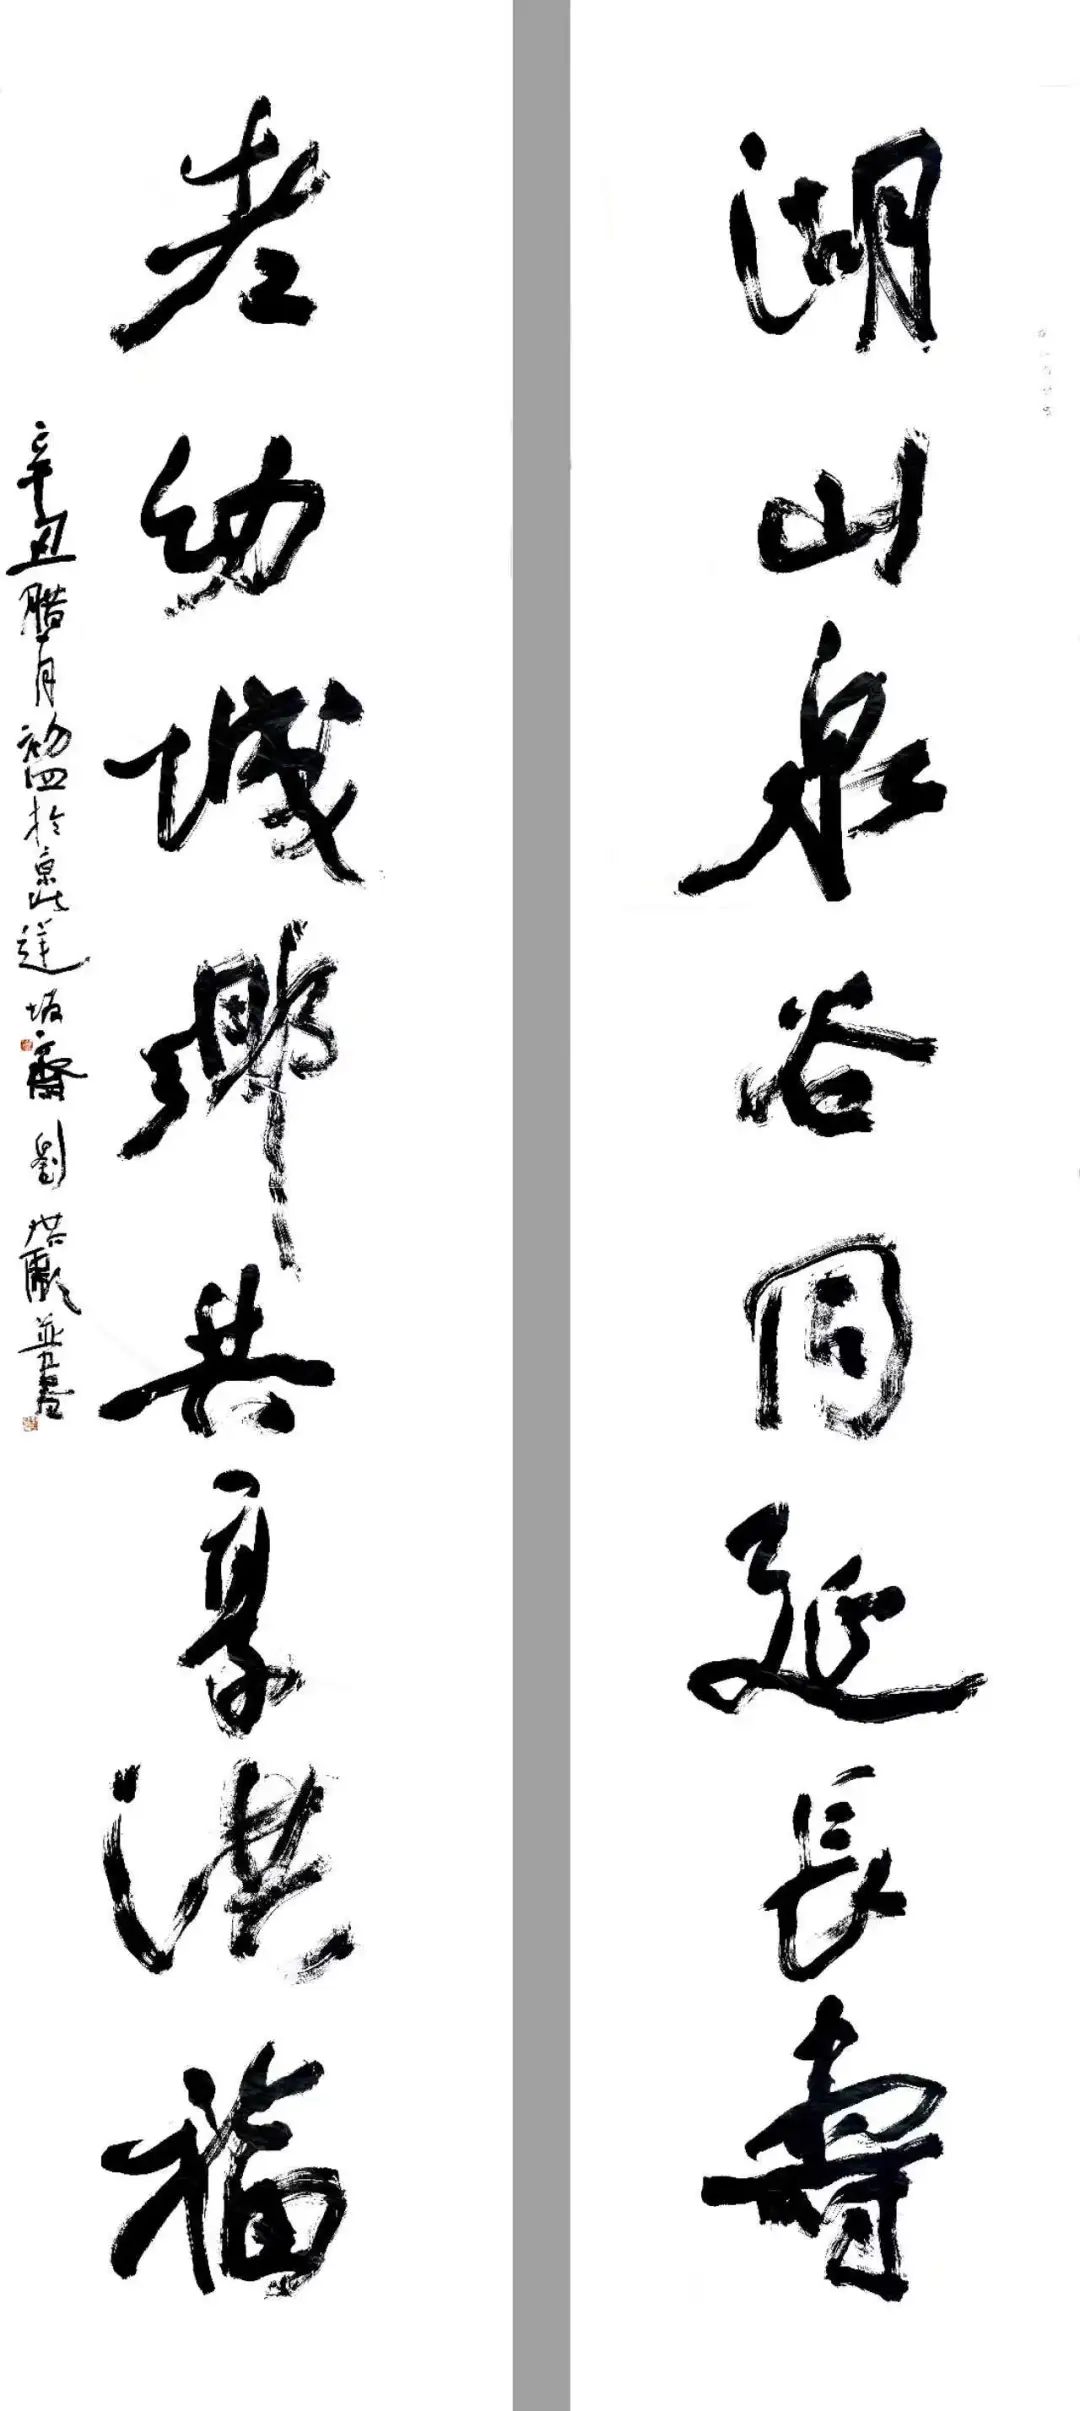 湖山泉谷同延長壽
老幼城鄉共享洪福
辛丑腊月初四於京北蓮坂齋劉 並書